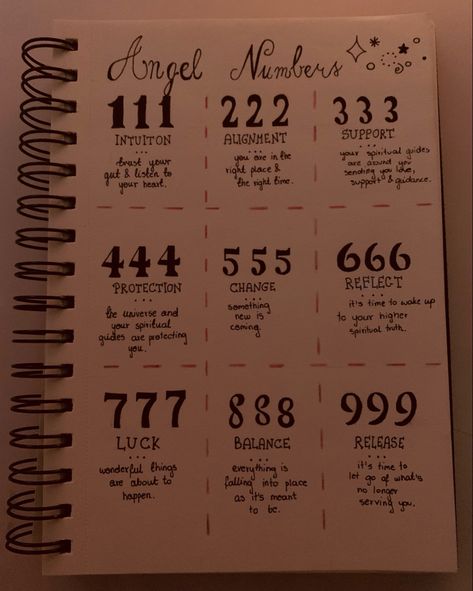 Angel Numbers
111
INTUITON
trust your
gut & listen to
your heart.
222
ALIGNMENT
you are in the
right place &
the right time.
333
SUPPORT
your spiritual guides
are around you
sending you love,
support & guidance.
444
PROTECTION
the universe and
your spiritual
guides are protecting
you.
555
CHANGE
something
new is
coming.
666
REFLECT
it's time to wake up
to your higher
spiritual truth.
777
LUCK
wonderful things
are about to
happen.
888
BALANCE
everything is
falling into place
as it's meant
to be.
999
RELEASE
it's time to
let go of what's
no longer
serving you.